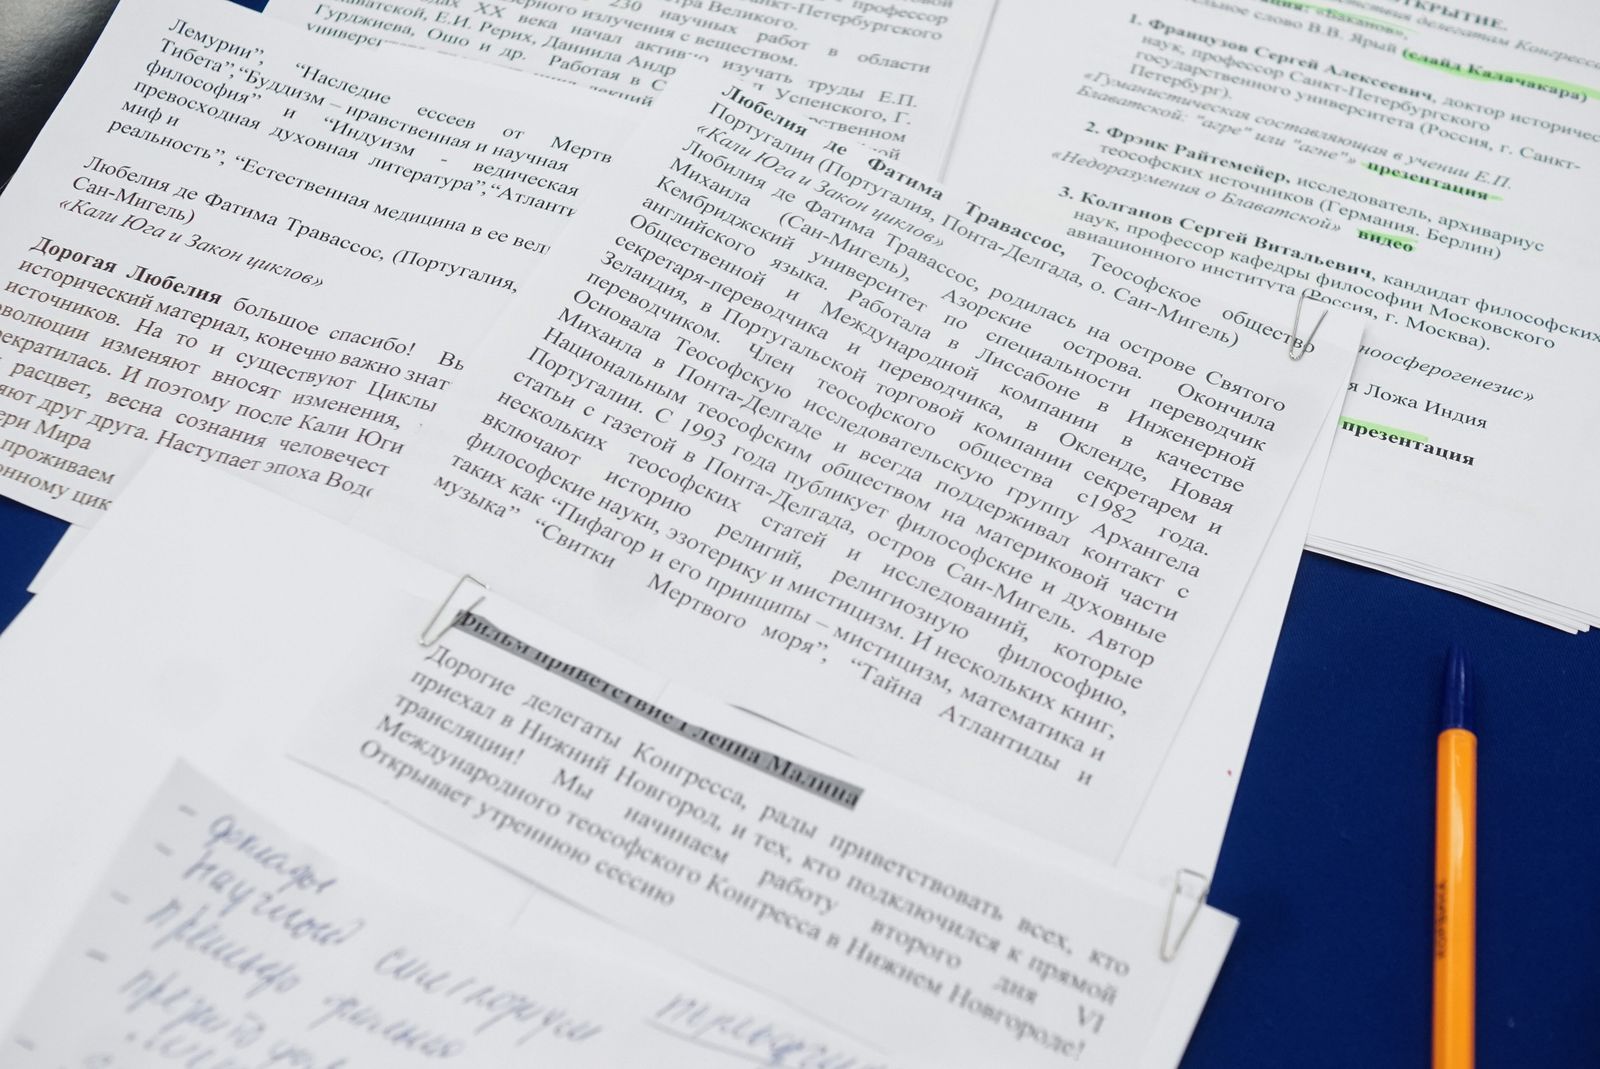 230 научных работ в области
Лемурии”, “Наследие ессеев от Мертв
Тибета”,“Буддизм – нравственная и научная
философия” и “Индуизм - ведическая
превосходная духовная литература”,“Атланти
миф и
реальность”, “Естественная медицина в ее вел
Любелия де Фатима Травассос, (Португалия,
Сан-Мигель)
«Кали Юга и Закон циклов»
Дорогая Любелия большое спасибо! Вы
исторический материал, конечно важно знат
источников. На то и существуют Циклы
изменяют вносят изменения,
И поэтому после Кали Юги
расцвет, весна сознания человечест
друг друга. Наступает эпоха Водо
Мира
проживаем
XX века начал активно изучать труды Е.П.
Е.И. Рерих, Даниила Андр
Гурджиева, Ошо и др. Работая в С
Успенского, Г.
Любелия де Фатима Травассос, Теософское общество
Португалии (Португалия, Понта-Делгада, о. Сан-Мигель)
«Кали Юга и Закон циклов»
Любилия де Фатима Травассос, родилась на острове Святого
Михаила (Сан-Мигель), Азорские острова. Окончила
Кембриджский университет по специальности переводчик
английского языка. Работала в Лиссабоне в Инженерной
Общественной и Международной компании в качестве
секретаря-переводчика и переводчика, в Окленде, Новая
Зеландия, в Португальской торговой компании секретарем и
переводчиком. Член теософского общества с1982 года.
Основала Теософскую исследовательскую группу Архангела
Михаила в Понта-Делгаде и всегда поддерживал контакт с
Национальным теософским обществом на материковой части
Португалии. С 1993 года публикует философские и духовные
статьи с газетой в Понта-Делгада, остров Сан-Мигель. Автор
нескольких теософских статей и исследований, которые
включают историю религий, религиозную философию,
философские науки, эзотерику и мистицизм. И нескольких книг,
таких как “Пифагор и его принципы – мистицизм, математика и
музыка” “Свитки Мертвого моря”, “Тайна Атлантиды и
ОТКРЫТИЕ.
слово В.В. Ярый (слайд Калачакара)
1. Французов Сергей Алексеевич, доктор историчес
наук, профессор Санкт-Петербургского
государственного университета (Россия, г. Санкт-
Петербург).
«Гуманистическая составляющая в учении Е.П.
Блаватской: "агре" или "агне"» презентация
2. Фрэнк Райтемейер, исследователь, архивариус
теософских источников (Германия. Берлин)
«Недоразумения о Блаватской» видео
3. Колганов Сергей Витальевич, кандидат философских
наук, профессор кафедры философии Московского
авиационного института (Россия, г. Москва).
ноосферогенезис»
Ложа Индия
презентация
Фильм приветствие Гленна Малица
Дорогие делегаты Конгресса, рады приветствовать всех, кто
приехал в Нижний Новгород, и тех, кто подключился к прямой
трансляции! Мы начинаем работу второго дня VI
Международного теософского Конгресса в Нижнем Новгороде!
Открывает утреннюю сессию
- доклады